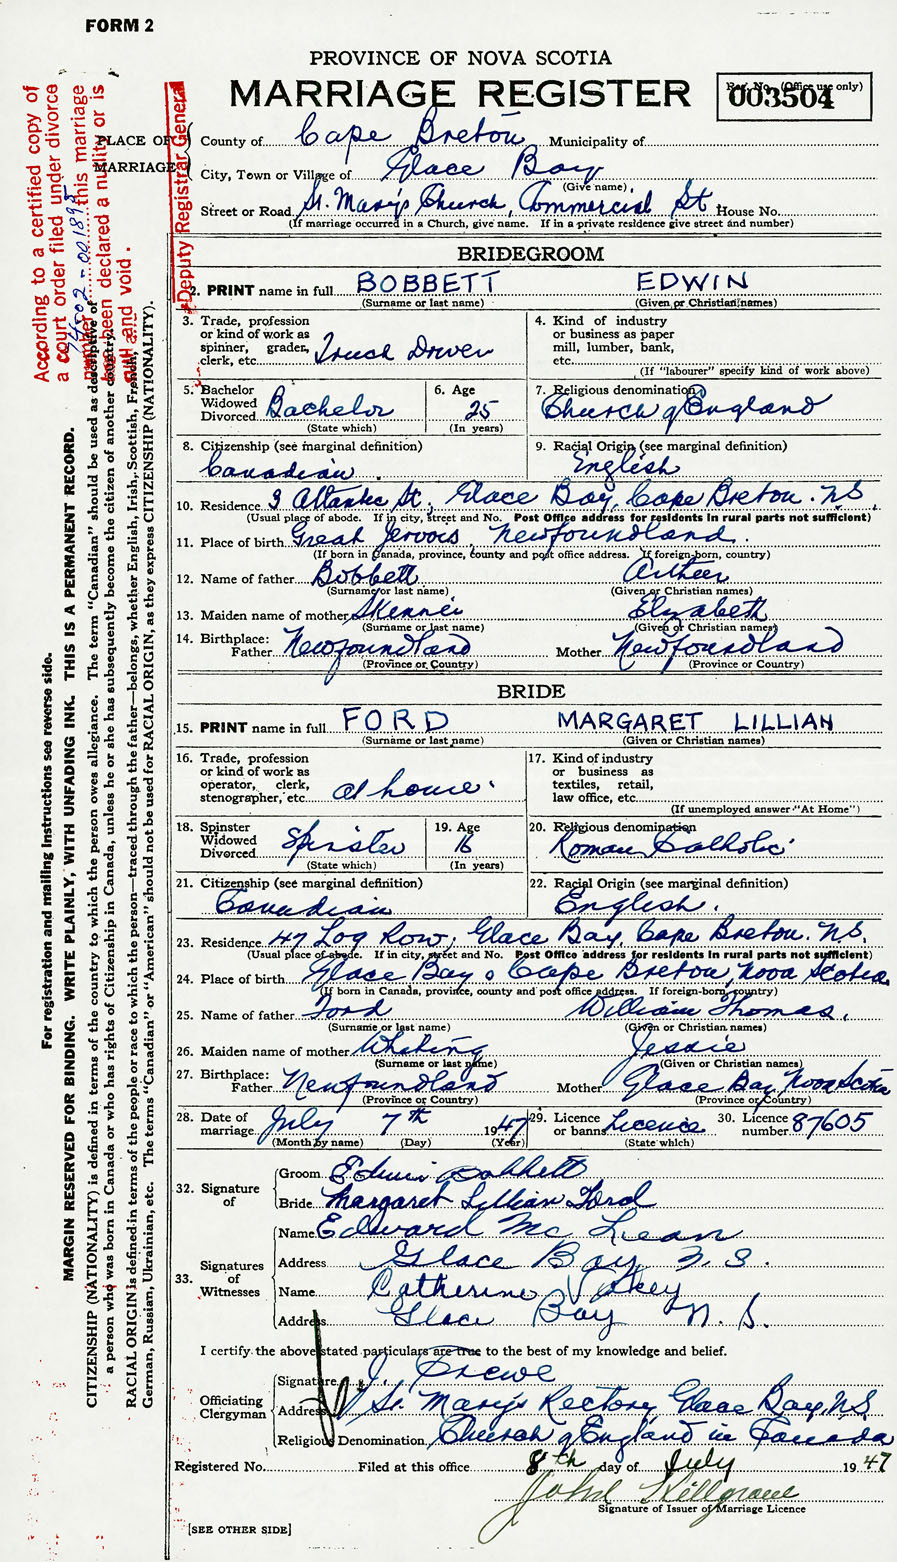 FORM 2
PROVINCE OF NOVA SCOTIA
MARRIAGE REGISTER
Reg. No. (Office use only)
003504
PLACE OF MARRIAGE
County of Cape Breton Municipality of
City, Town or Village of Glace Bay
(Give name)
Street or Road St. Mary's Church, Commercial St. House No.
(If marriage occurred in a Church, give name. If in a private residence give street and number)
BRIDEGROOM
2. PRINT name in full BOBBETT EDWIN
(Surname or last name) (Given or Christian names)
3. Trade, profession or kind of work as spinner, grader, clerk, etc. Truck Driver
4. Kind of industry or business as paper mill, lumber, bank, etc.
(If "labourer" specify kind of work above)
5. Bachelor Widowed Divorced Bachelor
(State which)
6. Age 25
(In years)
7. Religious denomination Church of England
8. Citizenship (see marginal definition)
Canadian
9. Racial Origin (see marginal definition)
English
10. Residence 3 Atlantic St., Glace Bay, Cape Breton. N.S.
(Usual place of abode. If in city, street and No. Post Office address for residents in rural parts not sufficient)
11. Place of birth Great Jervois, Newfoundland.
(If born in Canada, province, county and post office address. If foreign-born, country)
12. Name of father Bobbett Arthur
(Surname or last name) (Given or Christian names)
13. Maiden name of mother Skinner Elizabeth
(Surname or last name) (Given or Christian names)
14. Birthplace: Father Newfoundland Mother Newfoundland
(Province or Country) (Province or Country)
BRIDE
15. PRINT name in full FORD MARGARET LILLIAN
(Surname or last name) (Given or Christian names)
16. Trade, profession or kind of work as operator, clerk, stenographer, etc. At home.
17. Kind of industry or business as textiles, retail, law office, etc.
(If unemployed answer "At Home")
18. Spinster Widowed Divorced Spinster
(State which)
19. Age 16
(In years)
20. Religious denomination
Roman Catholic
21. Citizenship (see marginal definition)
Canadian
22. Racial Origin (see marginal definition)
English.
23. Residence 47 Log Row, Glace Bay, Cape Breton. N.S.
(Usual place of abode. If in city, street and No. Post Office address for residents in rural parts not sufficient)
24. Place of birth Glace Bay, Cape Breton, Nova Scotia
(If born in Canada, province, county and post office address. If foreign-born, country)
25. Name of father Ford William Thomas.
(Surname or last name) (Given or Christian names)
26. Maiden name of mother Whiting Jessie
(Surname or last name) (Given or Christian names)
27. Birthplace: Father Newfoundland Mother Glace Bay Nova Scotia
(Province or Country) (Province or Country)
28. Date of marriage July 7th 1947
(Month by name) (Day) (Year)
29. Licence or banns Licence
(State which)
30. Licence number 87605
32. Signature of
Groom Edwin Bobbett
Bride Margaret Lillian Ford
33. Signatures of Witnesses
Name Edward McLean
Address Glace Bay N.S.
Name Catherine
Address Glace Bay N.S.
I certify the above stated particulars are true to the best of my knowledge and belief.
Officiating Clergyman
Signature J. Frewe
Address St. Mary's Rectory, Glace Bay, N.S.
Religious Denomination Church of England in Canada
Registered No. Filed at this office 8th day of July 1947
John Killgrane
Signature of Issuer of Marriage Licence
[SEE OTHER SIDE]
According to a certified copy of
a court order filed under divorce
number 7402-001895 this marriage
has been declared a nullity or is
null and void.
Deputy Registrar General
For registration and mailing instructions see reverse side.
MARGIN RESERVED FOR BINDING. WRITE PLAINLY, WITH UNFADING INK. THIS IS A PERMANENT RECORD.
CITIZENSHIP (NATIONALITY) is defined in terms of the country to which the person owes allegiance. The term "Canadian" should be used as descriptive of
a person who was born in Canada or who has rights of Citizenship in Canada, unless he or she has subsequently become the citizen of another country.
RACIAL ORIGIN is defined in terms of the people or race to which the person—traced through the father—belongs, whether English, Irish, Scottish, French,
German, Russian, Ukrainian, etc. The terms "Canadian" or "American" should not be used for RACIAL ORIGIN, as they express CITIZENSHIP (NATIONALITY).